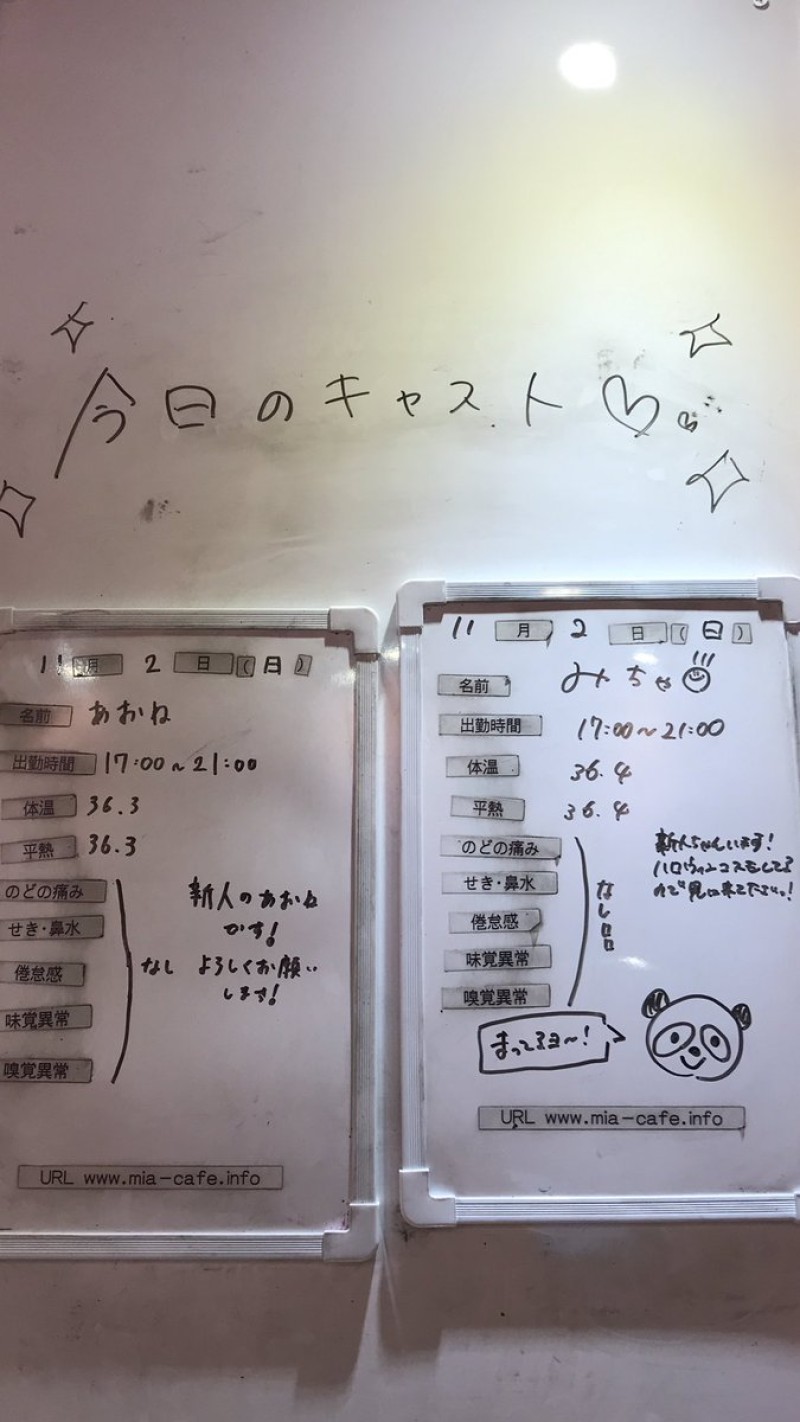 今日のキャスト♡
11月2日(日)
名前 あおね
出勤時間 17:00~21:00
体温 36.3
平熱 36.3
のどの痛み
せき・鼻水
倦怠感
味覚異常
嗅覚異常
なし
新人のあおね
かす!
よろしくお願い
します!
URL www.mia-cafe.info
11月2日(日)
名前 みちゃ
出勤時間 17:00~21:00
体温 36.4
平熱 36.4
のどの痛み
せき・鼻水
倦怠感
味覚異常
嗅覚異常
なし
新人ちゃんいます!
ハロウィンコスもしてる
ので見に来てださい!
まってるヨ~!
URL www.mia-cafe.info